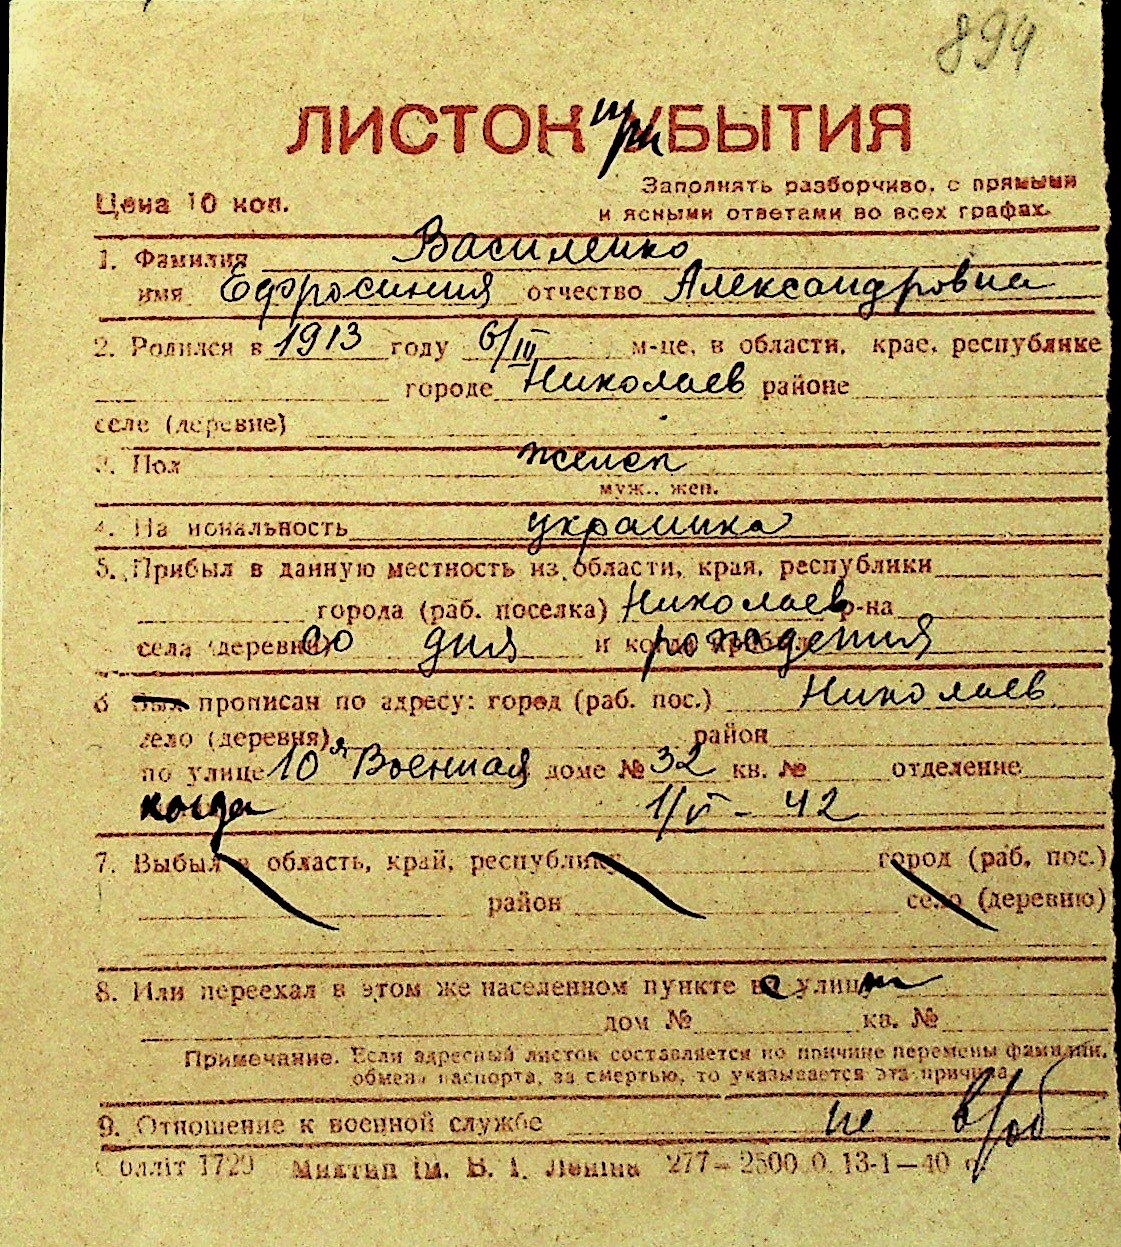 894
ЛИСТОК при УБЫТИЯ
Заполнять разборчиво, с прямыми
Цена 10 коп.
и ясными ответами во всех графах.
1. Фамилия Василенко
имя Ефросиния отчество Александровна
2. Родился в 1913 году 6/III м-це, в области, крае, республике
городе Николаев районе
селе (деревне)
3. Пол женск
муж., жен.
4. На иональность украинка
5. Прибыл в данную местность из области, края, республики
города (раб. поселка) Николаев р-на
села (деревни) со дня и когда прибыл рождения
6 Был прописан по адресу: город (раб. пос.) Николаев
село (деревня) район
по улице 10я Военная доме № 32 кв. № отделение
когда 1/VI - 42
7. Выбыл в область, край, республику город (раб. пос.)
район село (деревню)
8. Или переехал в этом же населенном пункте с улицы
дом № кв. №
Примечание. Если адресный листок составляется по причине перемены фамилии,
обмена паспорта, за смертью, то указывается эта причина.
9. Отношение к военной службе не в/об
облліт 1729 Миктип ім. В. І. Леніна 277—2500 0. 13-1—40